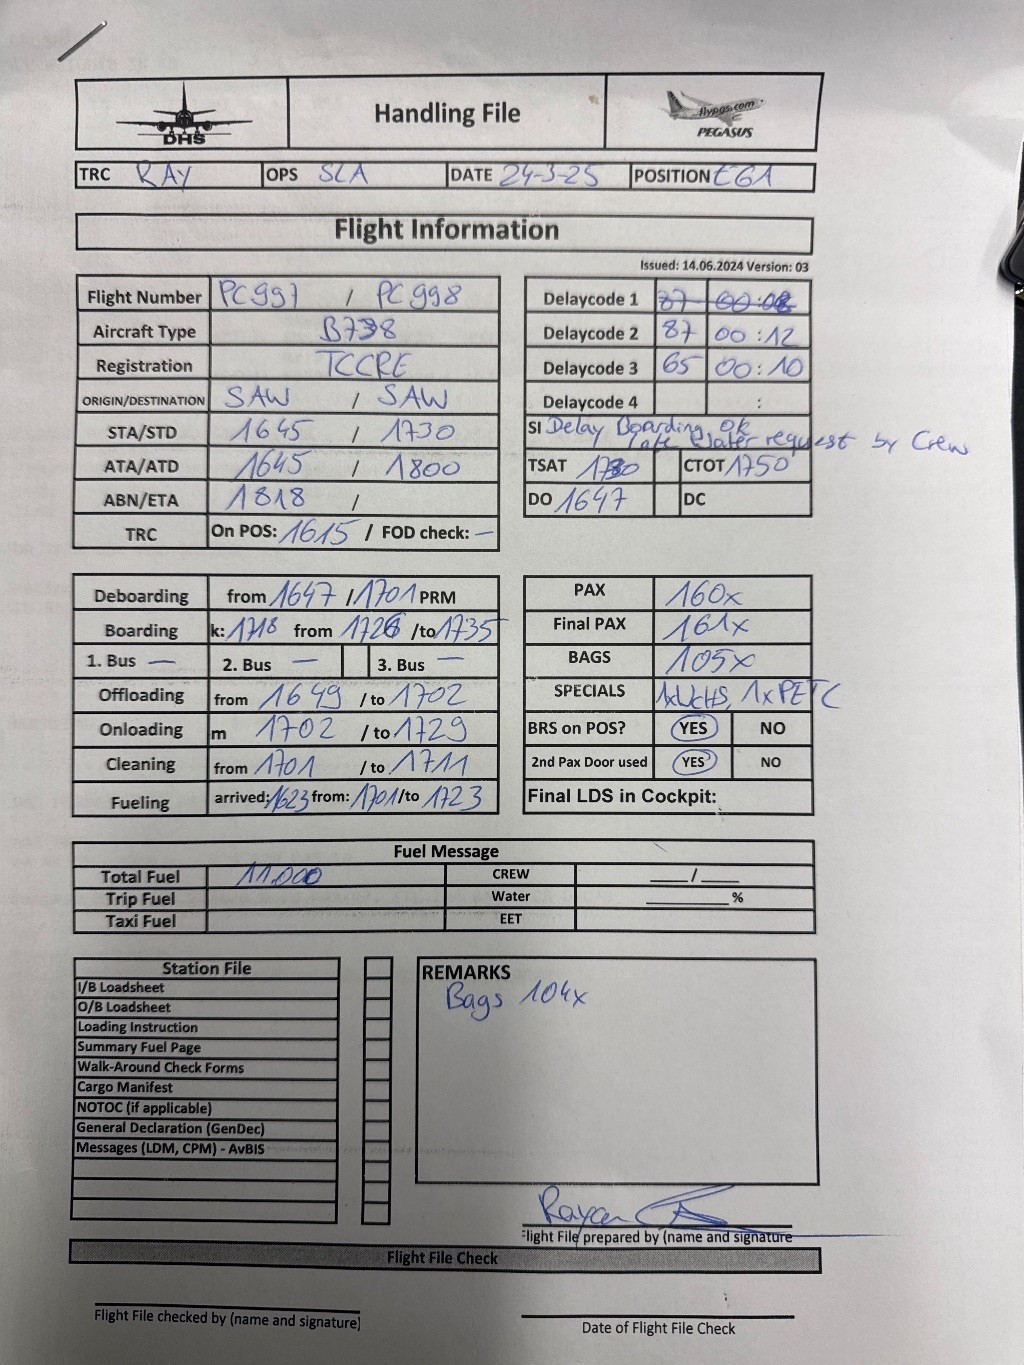 DHS
Handling File
flypgs.com
PEGASUS
TRC RAY OPS SLA DATE 24-3-25 POSITION EG1
Flight Information
Issued: 14.06.2024 Version: 03
Flight Number PC997 / PC998
Aircraft Type B738
Registration TCCRE
ORIGIN/DESTINATION SAW / SAW
STA/STD 1645 / 1730
ATA/ATD 1645 / 1800
ABN/ETA 1818 /
TRC On POS: 1615 / FOD check: —
Delaycode 1 87 00:08
Delaycode 2 87 00:12
Delaycode 3 65 00:10
Delaycode 4 :
SI Delay Boarding ok
later request by Crew
TSAT CTOT 1750
DO 1647 DC
Deboarding from 1647 / 1701 PRM
Boarding k: 1718 from 1726 /to 1735
1. Bus — 2. Bus — 3. Bus —
Offloading from 1649 / to 1702
Onloading m 1702 / to 1729
Cleaning from 1701 / to 1711
Fueling arrived: 1623 from: 1701 /to 1723
PAX 160x
Final PAX 161x
BAGS 105x
SPECIALS 1xWCHS, 1xPETC
BRS on POS? YES NO
2nd Pax Door used YES NO
Final LDS in Cockpit:
Fuel Message
Total Fuel 11.000 CREW ____/____
Trip Fuel Water ________%
Taxi Fuel EET
Station File
I/B Loadsheet
O/B Loadsheet
Loading Instruction
Summary Fuel Page
Walk-Around Check Forms
Cargo Manifest
NOTOC (if applicable)
General Declaration (GenDec)
Messages (LDM, CPM) - AvBIS
REMARKS
Bags 104x
Rayan
Flight File prepared by (name and signature
Flight File Check
Flight File checked by (name and signature)
Date of Flight File Check